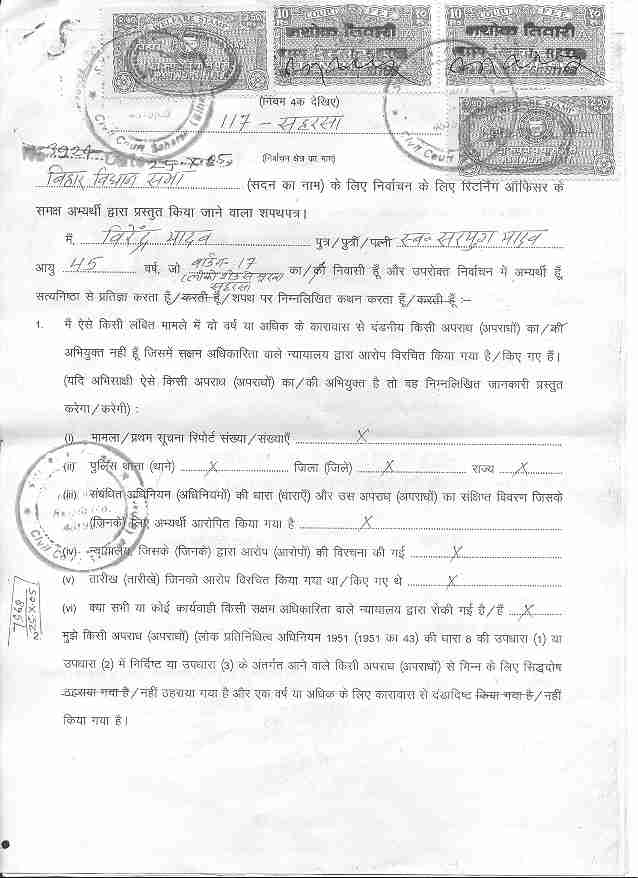 COURT FEE
अशोक तिवारी
अशोक तिवारी
(नियम 4क देखिए)
117 - सहरसा
(निर्वाचन क्षेत्र का नाम)
बिहार विधान सभा (सदन का नाम) के लिए निर्वाचन के लिए रिटर्निंग ऑफिसर के
समक्ष अभ्यर्थी द्वारा प्रस्तुत किया जाने वाला शपथपत्र।
मैं, विरेन्द्र यादव पुत्र/पुत्री/पत्नी स्व० सरयुग यादव
वार्ड नं- 17
आयु 45 वर्ष, जो सहरसा का/की निवासी हूँ और उपरोक्त निर्वाचन में अभ्यर्थी हूँ,
सत्यनिष्ठा से प्रतिज्ञा करता हूँ/करती हूँ/शपथ पर निम्नलिखित कथन करता हूँ/करती हूँ :–
1. मैं ऐसे किसी लंबित मामले में दो वर्ष या अधिक के कारावास से दंडनीय किसी अपराध (अपराधों) का/की
अभियुक्त नहीं हूँ जिसमें सक्षम अधिकारिता वाले न्यायालय द्वारा आरोप विरचित किया गया है/किए गए हैं।
(यदि अभिसाक्षी ऐसे किसी अपराध (अपराधों) का/की अभियुक्त है तो वह निम्नलिखित जानकारी प्रस्तुत
करेगा/करेगी) :
(i) मामला/प्रथम सूचना रिपोर्ट संख्या/संख्याएँ X
(ii) पुलिस थाना (थाने) X जिला (जिले) X राज्य X
(iii) संबंधित अधिनियम (अधिनियमों) की धारा (धाराएँ) और उस अपराध (अपराधों) का संक्षिप्त विवरण जिसके
(जिनके) लिए अभ्यर्थी आरोपित किया गया है X
(iv) न्यायालय, जिसके (जिनके) द्वारा आरोप (आरोपों) की विरचना की गई X
(v) तारीख (तारीखें) जिनको आरोप विरचित किया गया था/किए गए थे X
(vi) क्या सभी या कोई कार्यवाही किसी सक्षम अधिकारिता वाले न्यायालय द्वारा रोकी गई है/हैं X
मुझे किसी अपराध (अपराधों) (लोक प्रतिनिधित्व अधिनियम 1951 (1951 का 43) की धारा 8 की उपधारा (1) या
उपधारा (2) में निर्दिष्ट या उपधारा (3) के अंतर्गत आने वाले किसी अपराध (अपराधों) से भिन्न के लिए सिद्धदोष
ठहराया गया है/नहीं ठहराया गया है और एक वर्ष या अधिक के लिए कारावास से दंडादिष्ट किया गया है/नहीं
किया गया है।